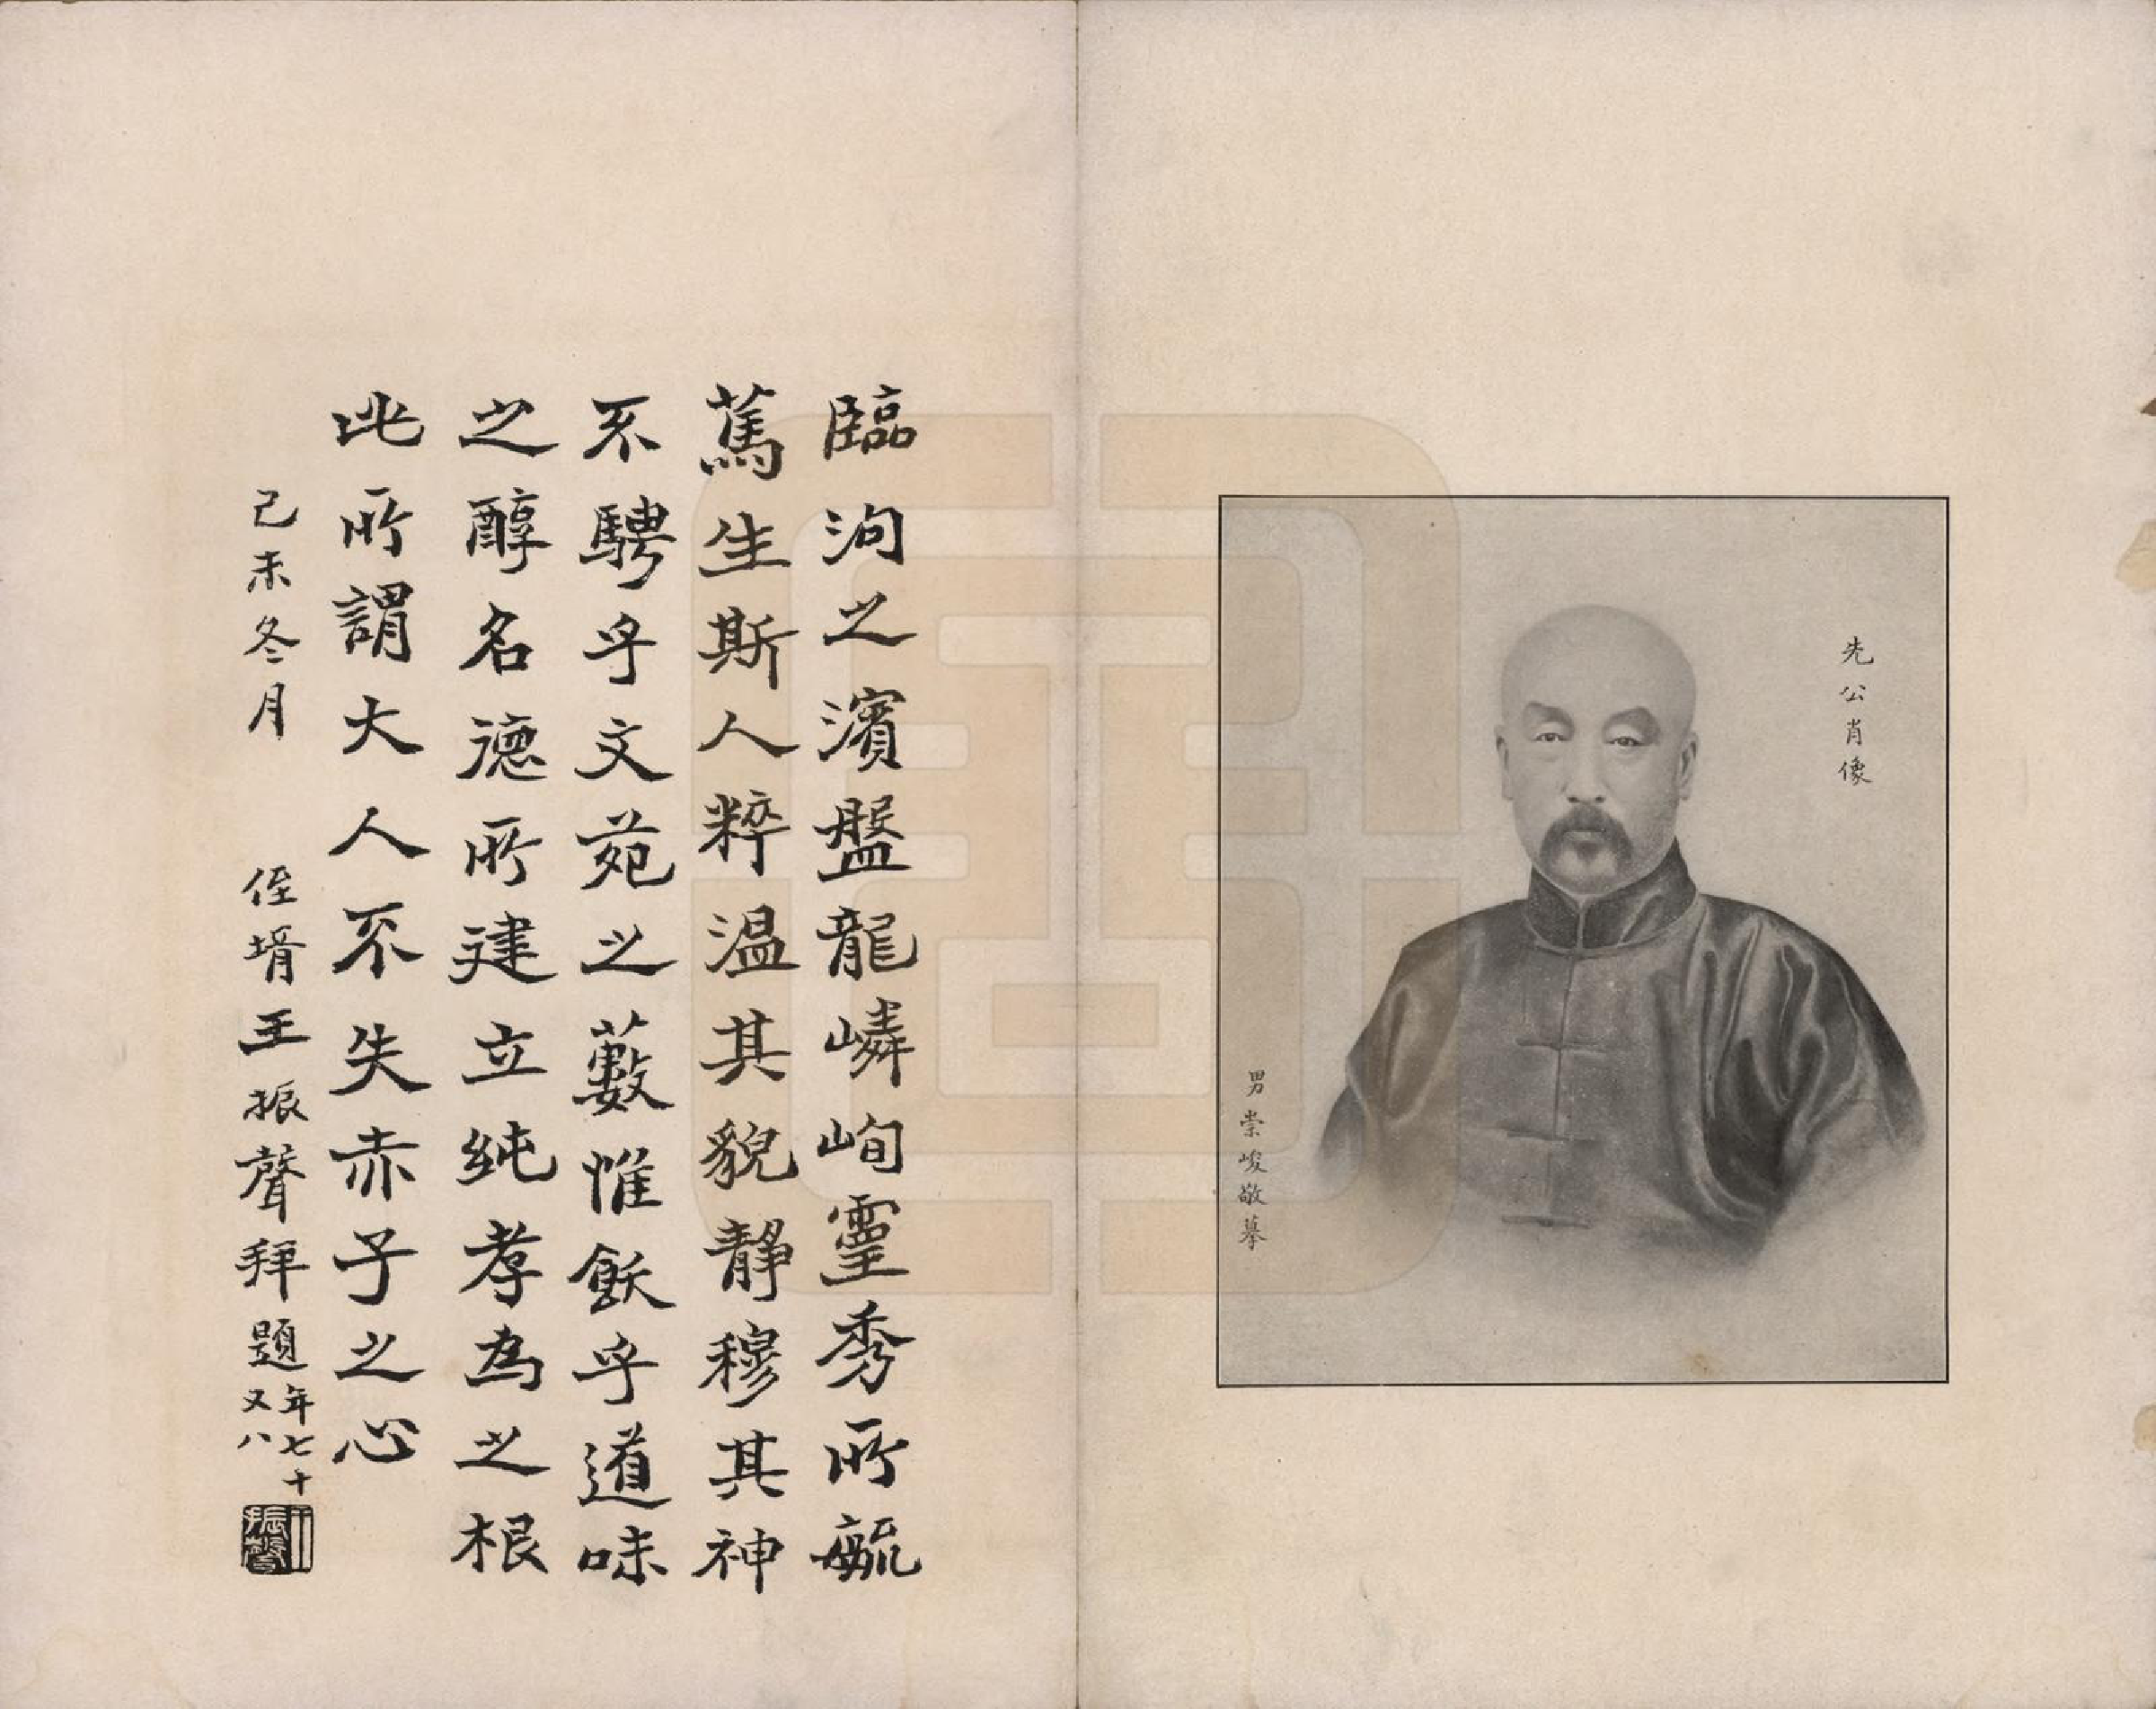 先公肖像
男崇峻敬摹
臨泃之濱盤龍嶙峋靈秀所毓
篤生斯人粹温其貌静穆其神
不騁乎文苑之藪惟飫乎道味
之醇名德所建立純孝為之根
此所謂大人不失赤子之心
己未冬月 侄壻王振聲拜題年七十又八
王振聲